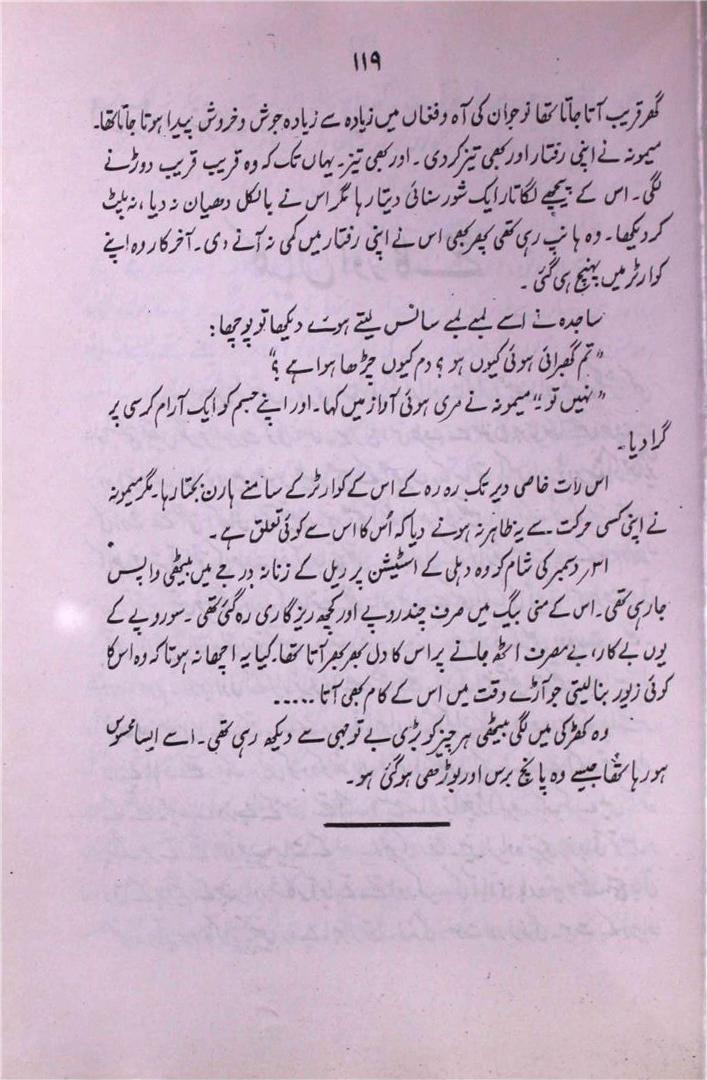 ۱۱۹
گھر قریب آتا جاتا تھا نوجوان کی آہ و فغاں میں زیادہ سے زیادہ جوش و خروش پیدا ہوتا جاتا تھا۔
میمونہ نے اپنی رفتار اور بھی تیز کر دی۔ اور بھی تیز۔ یہاں تک کہ وہ قریب قریب دوڑنے
لگی۔ اس کے پیچھے لگاتار ایک شور سنائی دیتا رہا مگر اس نے بالکل دھیان نہ دیا، نہ پلٹ
کر دیکھا۔ وہ ہانپ رہی تھی پھر بھی اس نے اپنی رفتار میں کمی نہ آنے دی۔ آخر کار وہ اپنے
کوارٹر میں پہنچ ہی گئی۔
ساجدہ نے اسے لمبے لمبے سانس لیتے ہوئے دیکھا تو پوچھا:
”تم گھبرائی ہوئی کیوں ہو؟ دم کیوں چڑھا ہوا ہے؟“
”نہیں تو۔“ میمونہ نے مری ہوئی آواز میں کہا۔ اور اپنے جسم کو ایک آرام کرسی پر
گرا دیا۔
اس رات خاصی دیر تک رہ رہ کے اس کے کوارٹر کے سامنے ہارن بجتا رہا۔ مگر میمونہ
نے اپنی کسی حرکت سے یہ ظاہر نہ ہونے دیا کہ اُس کا اس سے کوئی تعلق ہے۔
۳۱ دسمبر کی شام کو وہ دہلی کے اسٹیشن پر ریل کے زنانہ درجے میں بیٹھی واپس
جا رہی تھی۔ اس کے منی بیگ میں صرف چند روپے اور کچھ ریزگاری رہ گئی تھی۔ سو روپے کے
یوں بے کار، بے مصرف اٹھ جانے پر اس کا دل بھر بھر آتا تھا۔ کیا یہ اچھا نہ ہوتا کہ وہ اس کا
کوئی زیور بنا لیتی جو آڑے وقت میں اس کے کام بھی آتا.....
وہ کھڑکی میں لگی بیٹھی ہر چیز کو بڑی بے توجہی سے دیکھ رہی تھی۔ اسے ایسا محسوس
ہو رہا تھا جیسے وہ پانچ برس اور بوڑھی ہو گئی ہو۔